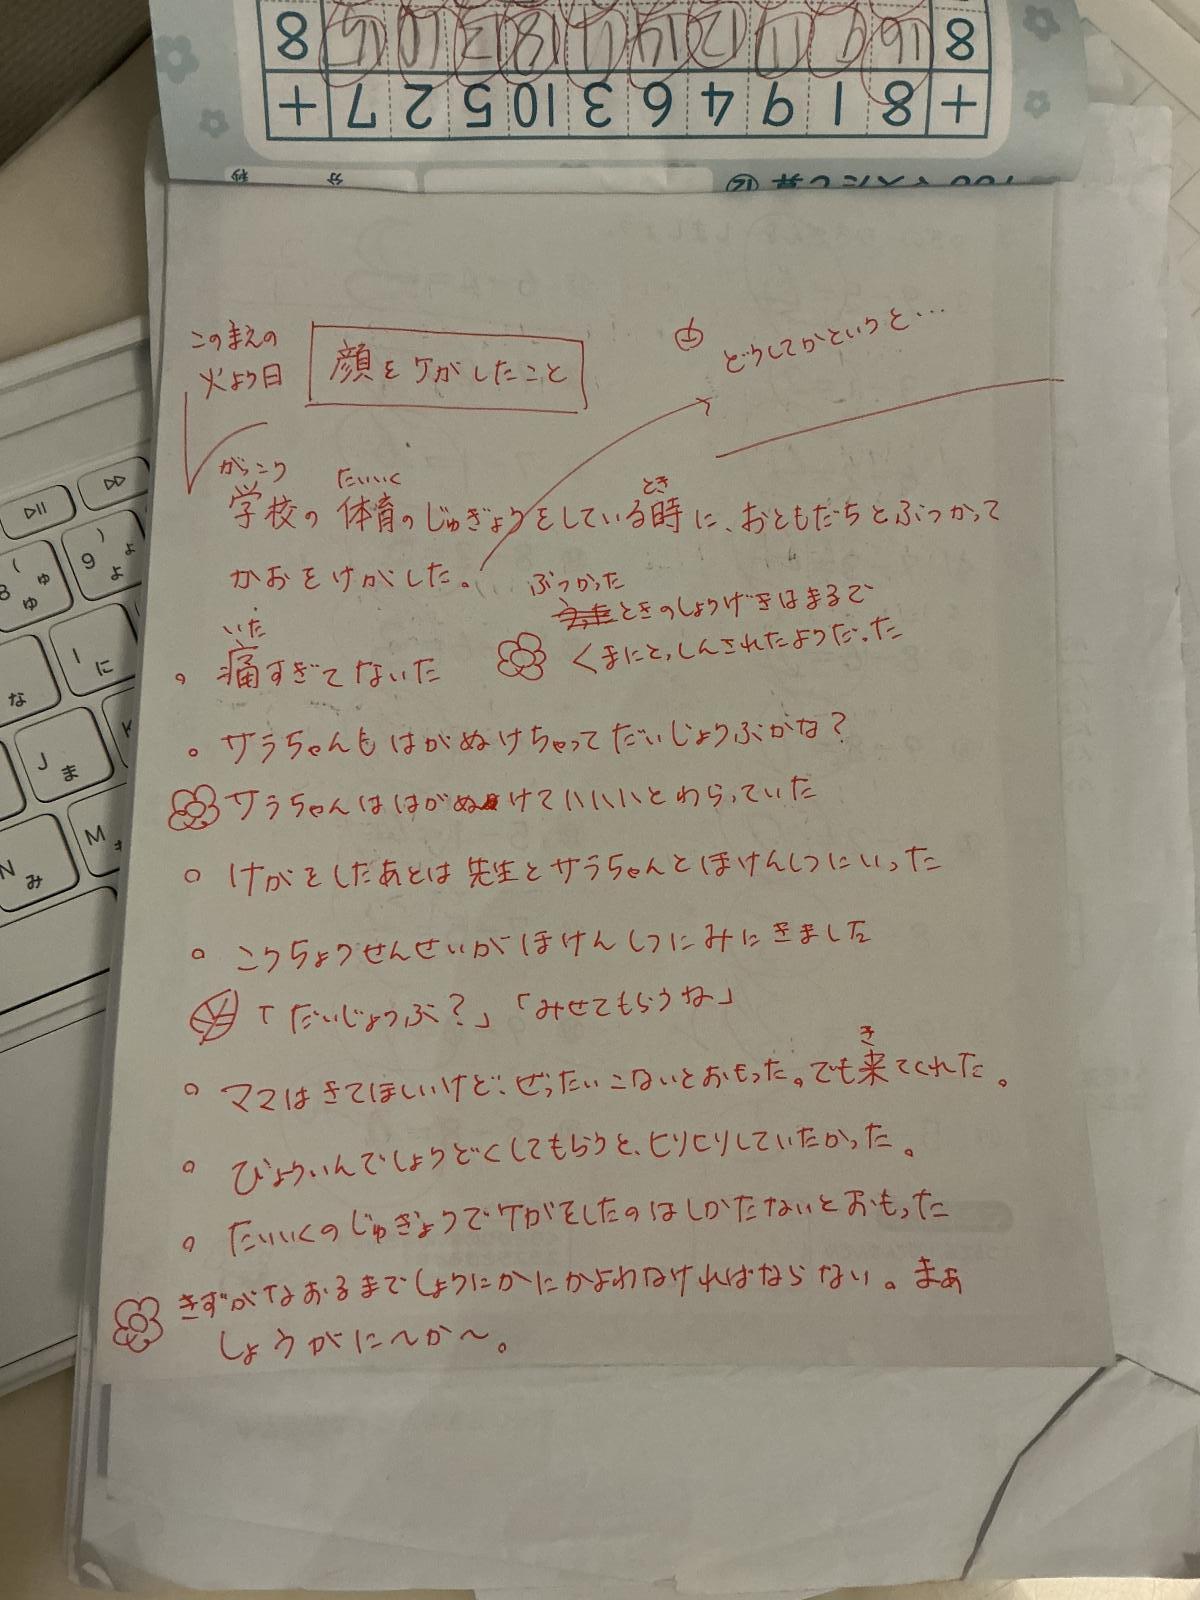 8 15 10 13 18 11 14 12 17 9 16 8
+ 7 2 5 10 3 6 4 9 1 8 +
分 秒
このまえの
火よう日
顔をケがしたこと
どうしてかというと…
がっこう たいいく とき
学校の体育のじゅぎょうをしている時に、おともだちとぶつかって
かおをけがした。
ぶつかった
ときのしょうげきはまるで
くまにとっしんされたようだった
いた
痛すぎてないた
サラちゃんもはがぬけちゃってだいじょうぶかな?
サラちゃんははがぬけてハハハとわらっていた
けがをしたあとは先生とサラちゃんとほけんしつにいった
こうちょうせんせいがほけんしつにみにきました
「だいじょうぶ?」「みせてもらうね」
き
ママはきてほしいけど、ぜったいこないとおもった。でも来てくれた。
びょういんでしょうどくしてもらうと、ヒリヒリしていたかった。
たいいくのじゅぎょうでケがをしたのはしかたないとおもった
きずがなおるまでしょうにかにかよわなければならない。まぁ
しょうがに〜か〜。
8 ゅ ゅ
9 ょ ょ
な
I に
J ま
K
N み
M